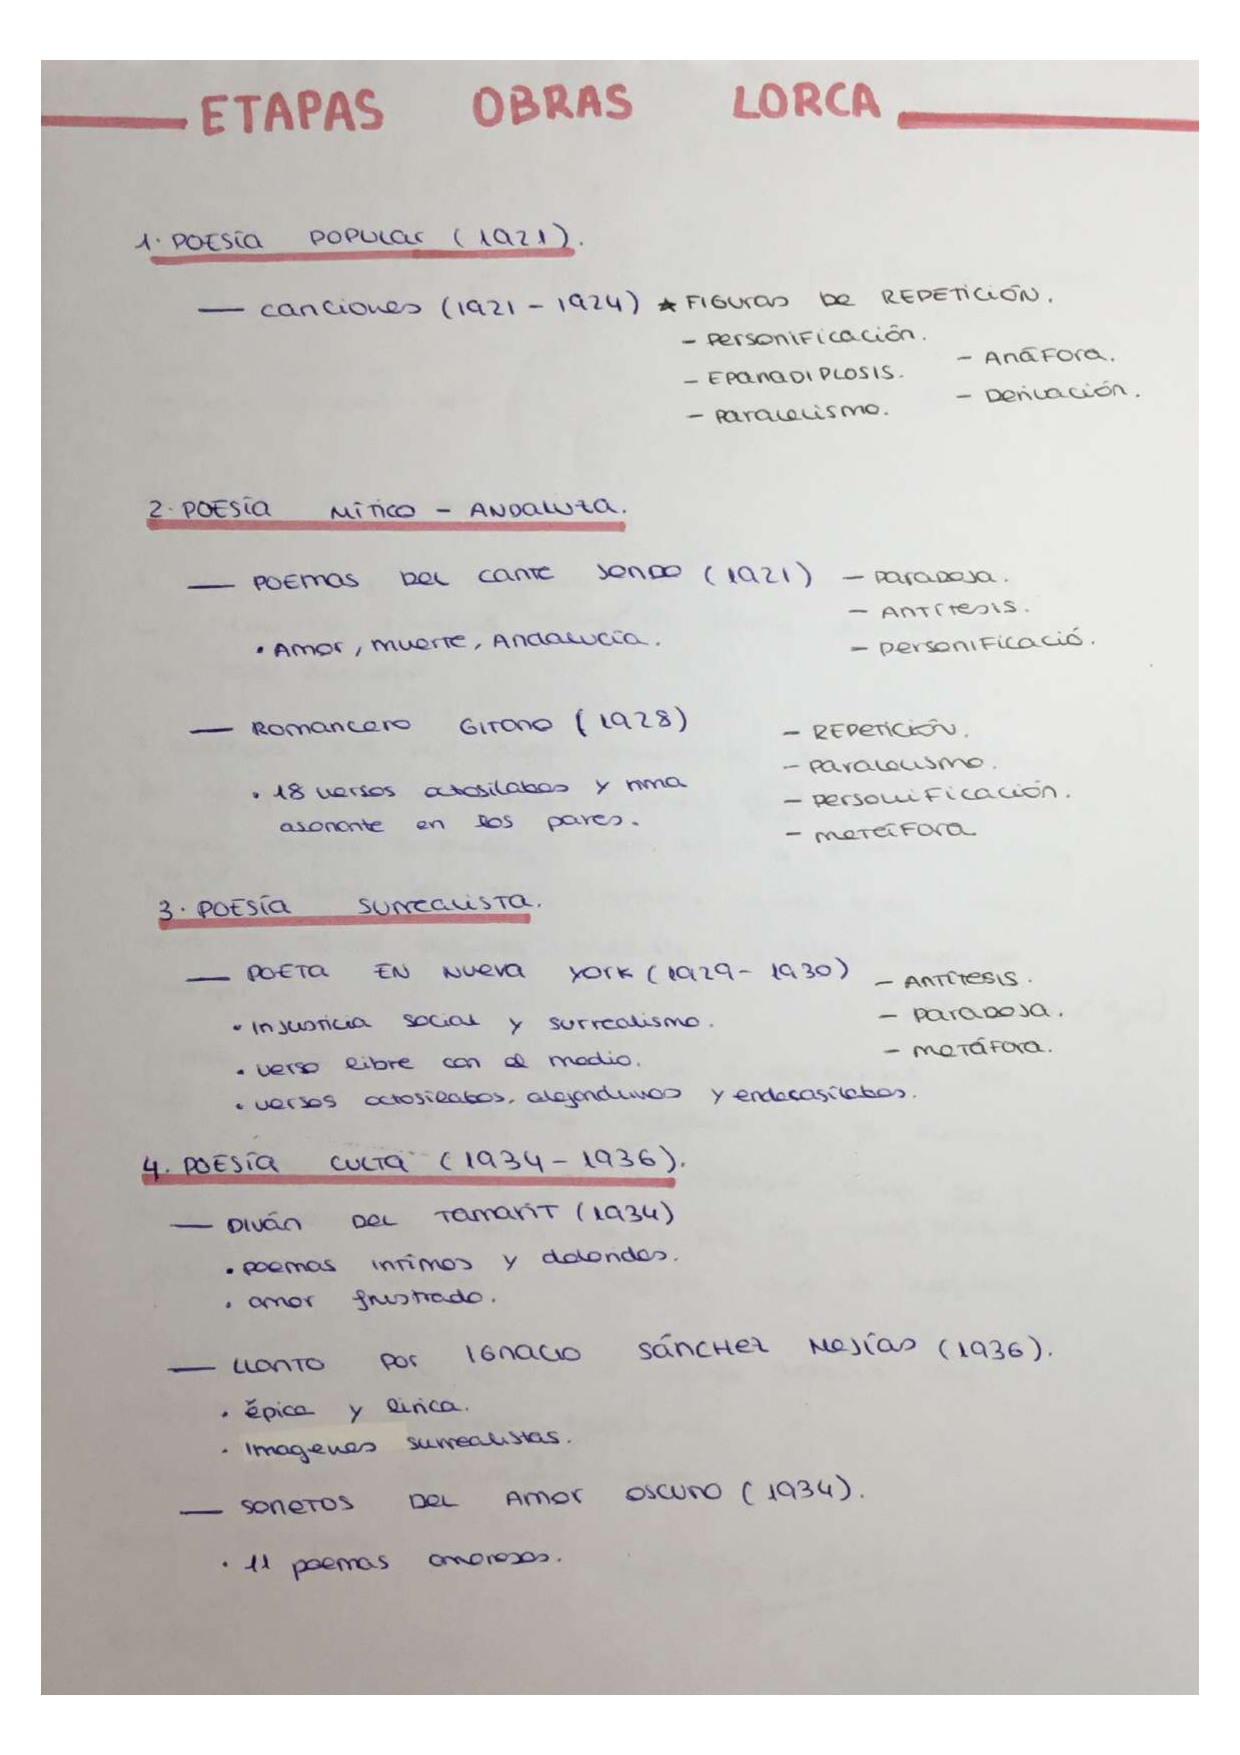 ETAPAS OBRAS LORCA
1. POESÍA POPULAR (1921).
— canciones (1921 - 1924) ★ FIGURAS DE REPETICIÓN.
- Personificación.
- Anáfora.
- EPANADIPLOSIS.
- Derivación.
- Paralelismo.
2. POESÍA MÍTICO - ANDALUZA.
— POEMAS DEL CANTE JONDO (1921) - Paradoja.
- ANTÍTESIS.
• Amor, muerte, Andalucía.
- Personificació.
— Romancero GITANO (1928)
- REPETICIÓN.
- Paralelismo.
• 18 versos octosílabos y rima
- Personificación.
asonante en los pares.
- metáfora
3. POESÍA SURREALISTA.
— POETA EN NUEVA YORK (1929 - 1930) - ANTÍTESIS.
• Injusticia social y surrealismo.
- Paradoja.
• verso libre con el medio.
- metáfora.
• versos octosílabos, alejandrinos y endecasílabos.
4. POESÍA CULTA (1934 - 1936).
— DIVÁN DEL TAMARIT (1934)
• poemas íntimos y dolondos.
• amor frustrado.
— LLANTO POR IGNACIO SÁNCHEZ MEJÍAS (1936).
• épica y lírica.
• Imagenes surrealistas.
— SONETOS DEL AMOR OSCURO (1934).
• 11 poemas amorosos.